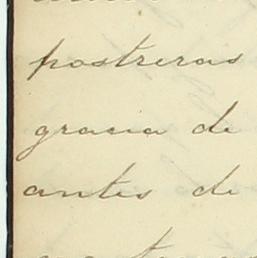 postreras
gracia de
antes de